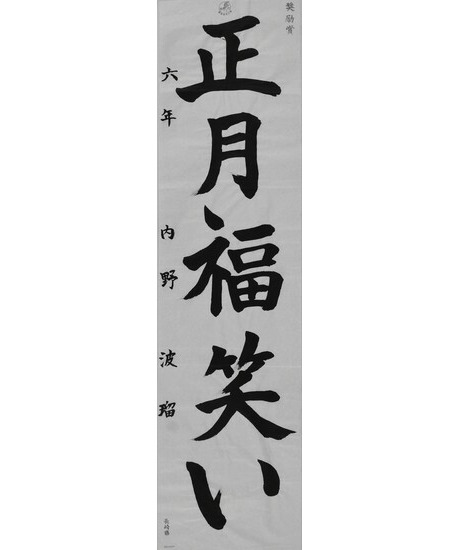 奨励賞
正月福笑い
六年 内野 波瑠
長崎県